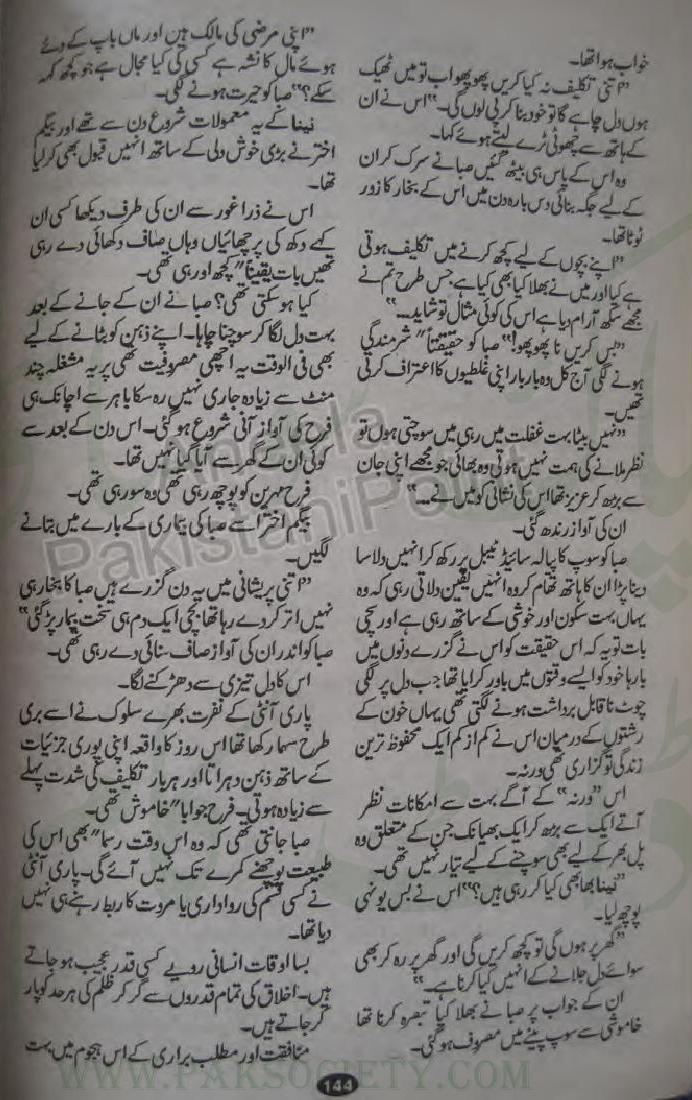 خواب ہوا تھا۔
”اتنی تکلیف نہ کیا کریں پھوپھو اب تو میں ٹھیک
ہوں دل چاہے گا تو خود بنا کر پی لوں گی۔“ اس نے ان
کے ہاتھ سے چھوٹی ٹرے لیتے ہوئے کہا۔
وہ اس کے پاس ہی بیٹھ گئیں صبا نے سرک کر ان
کے لیے جگہ بنائی دس بارہ دن میں اس کے بخار کا زور
ٹوٹا تھا۔
”اپنے بچوں کے لیے کچھ کرنے میں تکلیف ہوتی
ہے کیا اور میں نے بھلا کیا بھی کیا ہے جس طرح تم نے
مجھے سکھ آرام دیا ہے اس کی کوئی مثال تو شاید...“
”بس کریں نا پھوپھو!“ صبا کو حقیقتاً“ شرمندگی
ہونے لگی آج کل وہ بار بار اپنی غلطیوں کا اعتراف کرتی
تھیں۔
”نہیں بیٹا بہت غفلت میں رہی میں سوچتی ہوں تو
نظر ملانے کی ہمت نہیں ہوتی وہ بھائی جو مجھے اپنی جان
سے بڑھ کر عزیز تھا اس کی نشانی کو میں نے...“
ان کی آواز رندھ گئی۔
صبا کو سوپ کا پیالہ سائیڈ ٹیبل پر رکھ کر انہیں دلاسا
دینا پڑا ان کا ہاتھ تھام کر وہ انہیں یقین دلاتی رہی کہ وہ
یہاں بہت سکون اور خوشی کے ساتھ رہی ہے اور سچی
بات تو یہ کہ اس حقیقت کو اس نے گزرے دنوں میں
بارہا خود کو ایسے وقتوں میں باور کرایا تھا جب دل پر لگی
چوٹ ناقابل برداشت ہونے لگتی تھی یہاں خون کے
رشتوں کے درمیان اس نے کم از کم ایک محفوظ ترین
زندگی تو گزاری تھی ورنہ۔
اس ”ورنہ“ کے آگے بہت سے امکانات نظر
آتے ایک سے بڑھ کر ایک بھیانک جن کے متعلق وہ
پل بھر کے لیے بھی سوچنے کے لیے تیار نہیں تھی۔
”نینا بھابھی کیا کر رہی ہیں؟“ اس نے بس یونہی
پوچھ لیا۔
”گھر پر ہوں گی تو کچھ کریں گی اور گھر پر رہ کر بھی
سوائے دل جلانے کے انہیں کیا کرنا ہے۔“
ان کے جواب پر صبا نے بھلا کیا تبصرہ کرنا تھا
خاموشی سے سوپ پینے میں مصروف ہو گئی۔
”اپنی مرضی کی مالک ہیں اور ماں باپ کے دئے
ہوئے مال کا نشہ ہے کسی کی کیا مجال ہے جو کچھ کہہ
سکے؟“ صبا کو حیرت ہونے لگی۔
نینا کے یہ معمولات شروع دن سے تھے اور بیگم
اختر نے بڑی خوش دلی کے ساتھ انہیں قبول بھی کر لیا
تھا۔
اس نے ذرا غور سے ان کی طرف دیکھا کسی ان
کہے دکھ کی پرچھائیاں وہاں صاف دکھائی دے رہی
تھیں بات یقیناً“ کچھ اور ہی تھی۔
کیا ہو سکتی تھی؟ صبا نے ان کے جانے کے بعد
بہت دل لگا کر سوچنا چاہا۔ اپنے ذہن کو بٹانے کے لیے
بھی فی الوقت یہ اچھی مصروفیت تھی پر یہ مشغلہ چند
منٹ سے زیادہ جاری نہیں رہ سکا باہر سے اچانک ہی
فرح کی آواز آنی شروع ہو گئی۔ اس دن کے بعد سے
کوئی ان کے گھر سے آیا گیا نہیں تھا۔
فرح مہرین کو پوچھ رہی تھی وہ سو رہی تھی۔
بیگم اختر اسے صبا کی بیماری کے بارے میں بتانے
لگیں۔
”اتنی پریشانی میں یہ دن گزرے ہیں صبا کا بخار ہی
نہیں اتر کر دے رہا تھا بچی ایک دم ہی سخت بیمار پڑ گئی“
صبا کو اندر ان کی آواز صاف سنائی دے رہی تھی۔
اس کا دل تیزی سے دھڑکنے لگا۔
پاری آنٹی کے نفرت بھرے سلوک نے اسے بری
طرح سہما رکھا تھا اس روز کا واقعہ اپنی پوری جزئیات
کے ساتھ ذہن دہراتا اور ہر بار تکلیف کی شدت پہلے
سے زیادہ ہوتی۔ فرح جواباً“ خاموش تھی۔
صبا جانتی تھی کہ وہ اس وقت رسماً“ بھی اس کی
طبیعت پوچھنے کمرے تک نہیں آئے گی۔ پاری آنٹی
نے کسی قسم کی رواداری یا مروت کا ربط رہنے ہی نہیں
دیا تھا۔
بسا اوقات انسانی رویے کسی قدر عجیب ہو جاتے
ہیں۔ اخلاق کی تمام قدروں سے گر کر ظلم کی ہر حد کو پار
کر جاتے ہیں۔
منافقت اور مطلب براری کے اس ہجوم میں بہت
144
WWW.PAKSOCIETY.COM
PakistaniPoint